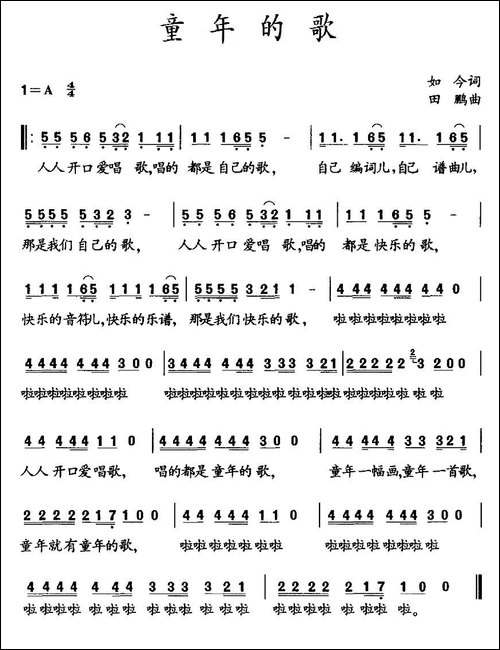 童年的歌
如 今词
1=A 4/4
田 鹏曲
55 56 532 1 11 | 11 165 5 - | 11. 165 11. 165 |
人人开口爱唱 歌,唱的 都是自己的歌, 自己 编词儿,自己 谱曲儿,
5555 5 532 3 - | 55 56 532 1 11 | 11 165 5 - |
那是我们自己的歌, 人人开口爱唱 歌,唱的 都是快乐的歌,
111 165 111 165 | 5555 5 321 1 - | 44 444 440 |
快乐的音符儿,快乐的乐谱, 那是我们快乐的歌, 啦啦啦啦啦啦啦
44444443 00 | 3444 444 333 321 | 22222 23 200 |
啦啦啦啦啦啦啦啦 啦啦啦啦啦啦啦啦啦啦啦啦啦啦啦啦啦啦啦啦啦
44 444 110 | 4444 444 300 | 444 444 33 321 |
人人开口爱唱歌, 唱的都是童年的歌, 童年一幅画,童年一首歌,
22222217100 | 44 444 4400 | 444 4444 300 |
童年就有童年的歌, 啦啦啦啦啦啦啦 啦啦啦啦啦啦啦啦
4444 444 333 321 | 2222 2217 1 00 ‖
啦 啦啦啦啦 啦啦 啦啦 啦 啦啦 啦 啦啦啦啦 啦 啦啦 啦。